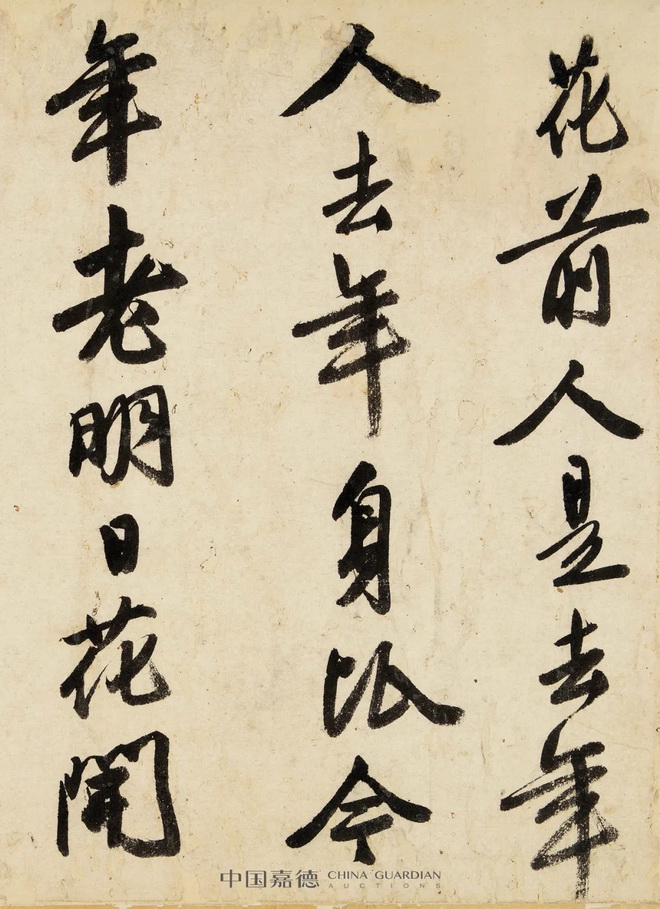 花前人是去年
人去年身比今
年老明日花開
中国嘉德 CHINA GUARDIAN
AUCTIONS